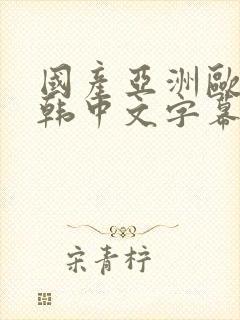 國產亞洲歐
韩中文字幕
宋青梓